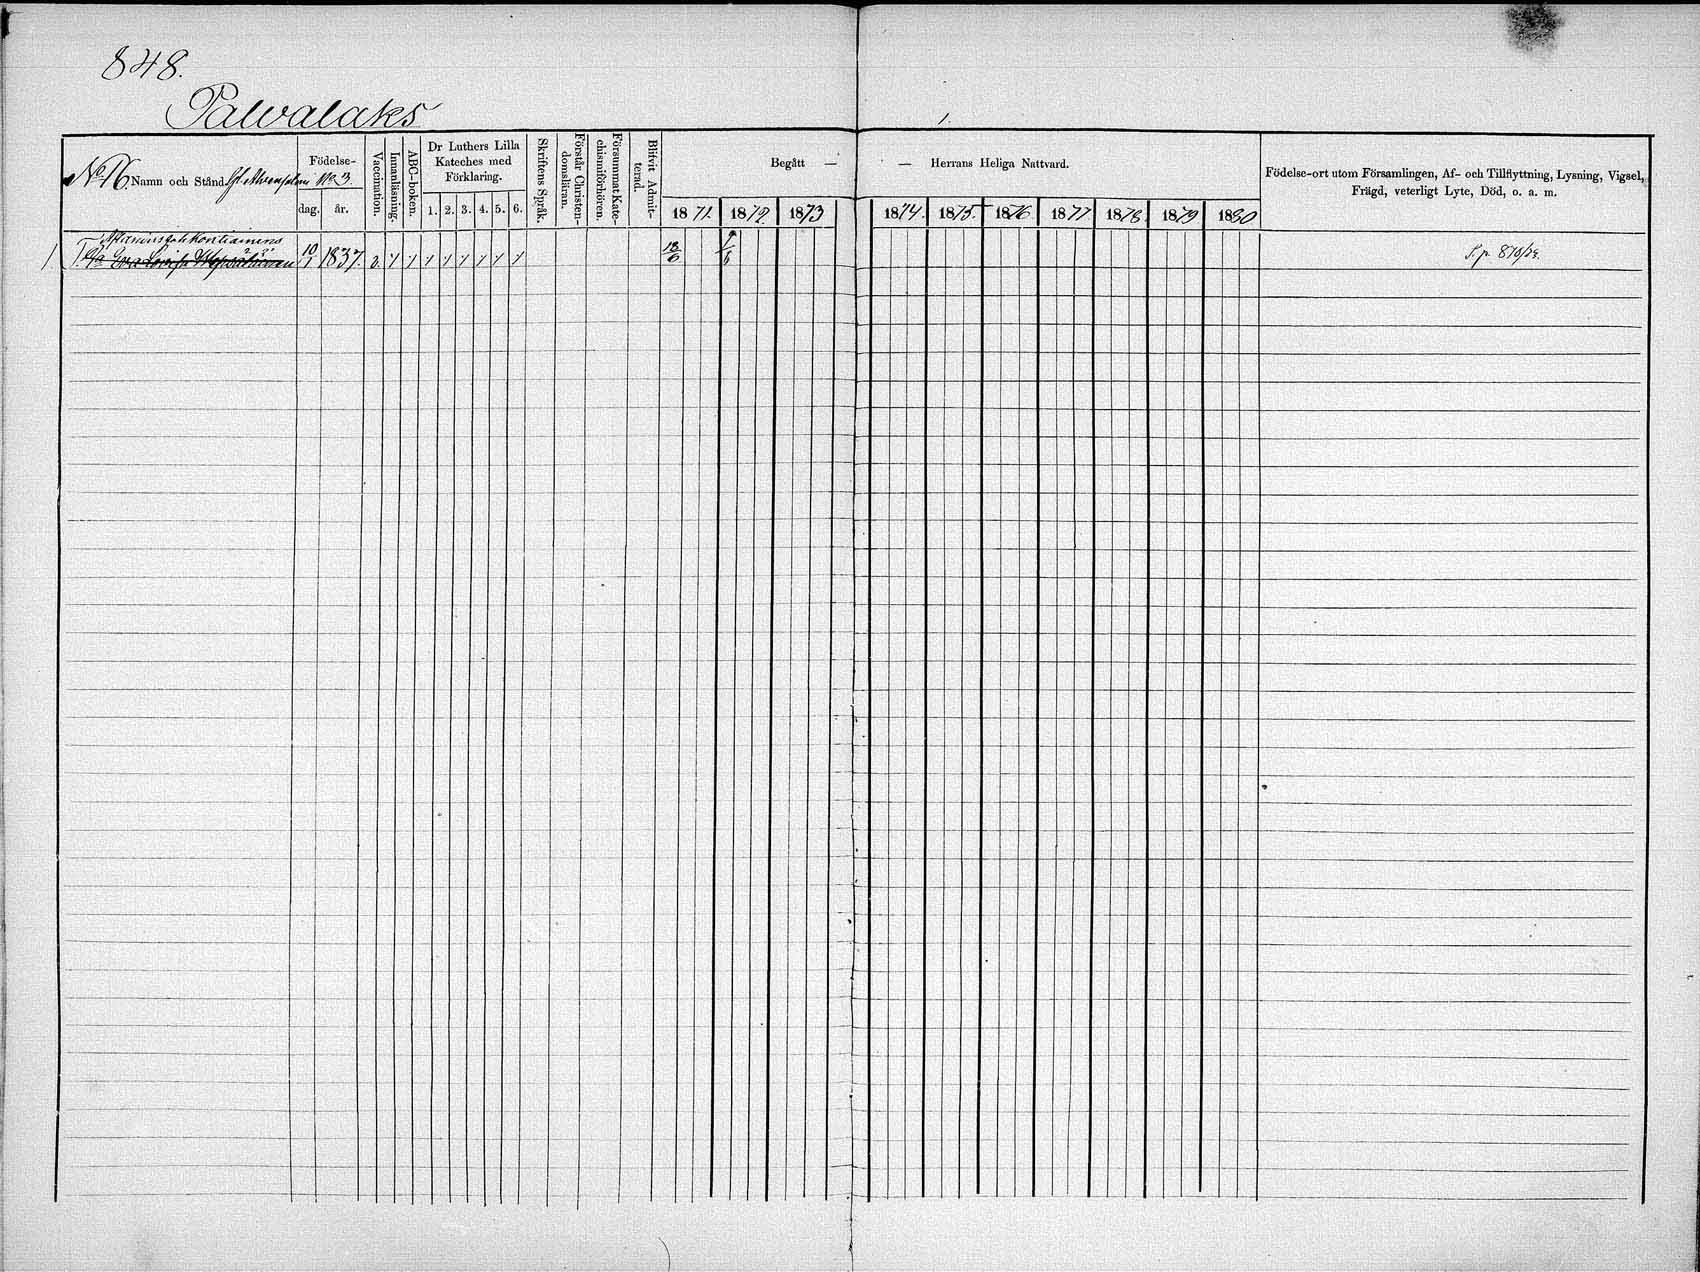 848.
Palvalaks
No 16. Namn och Stånd No 3.
Födelse-
dag. år.
Vaccination.
Innanläsning.
ABC-boken.
Dr Luthers Lilla
Kateches med
Förklaring.
1. 2. 3. 4. 5. 6.
Skriftens Språk.
Förstår Christen-
domsläran.
Försummat Kate-
chismiförhören.
Blifvit Admit-
terad.
Begått — — Herrans Heliga Nattvard.
1871. 1872. 1873 1874. 1875. 1876. 1877 1878. 1879 1880
Födelse-ort utom Församlingen, Af- och Tillflyttning, Lysning, Vigsel,
Frägd, veterligt Lyte, Död, o. a. m.
1 Eva Lovisa 10/1 1837. v. 1 1 1 1 1 1 1 1